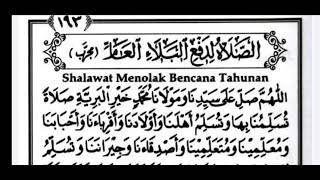 ١٩٣
الصَّلَاةُ لِدَفْعِ الْبَلَاءِ الْعَامِّ (مجرب)
Shalawat Menolak Bencana Tahunan
اَللّٰهُمَّ صَلِّ عَلَى سَيِّدِنَا وَمَوْلَانَا مُحَمَّدٍ خَيْرِ الْبَرِيَّةِ صَلَاةً
تُسَلِّمُنَا بِهَا وَتُسَلِّمُ أَهْلَنَا وَأَوْلَادَنَا وَأَقْرِبَاءَنَا وَأَحْبَابَنَا
وَمُعَلِّمِيْنَا وَمُتَعَلِّمِيْنَا وَأَصْدِقَاءَنَا وَجِيْرَانَنَا وَتُسَلِّمُ